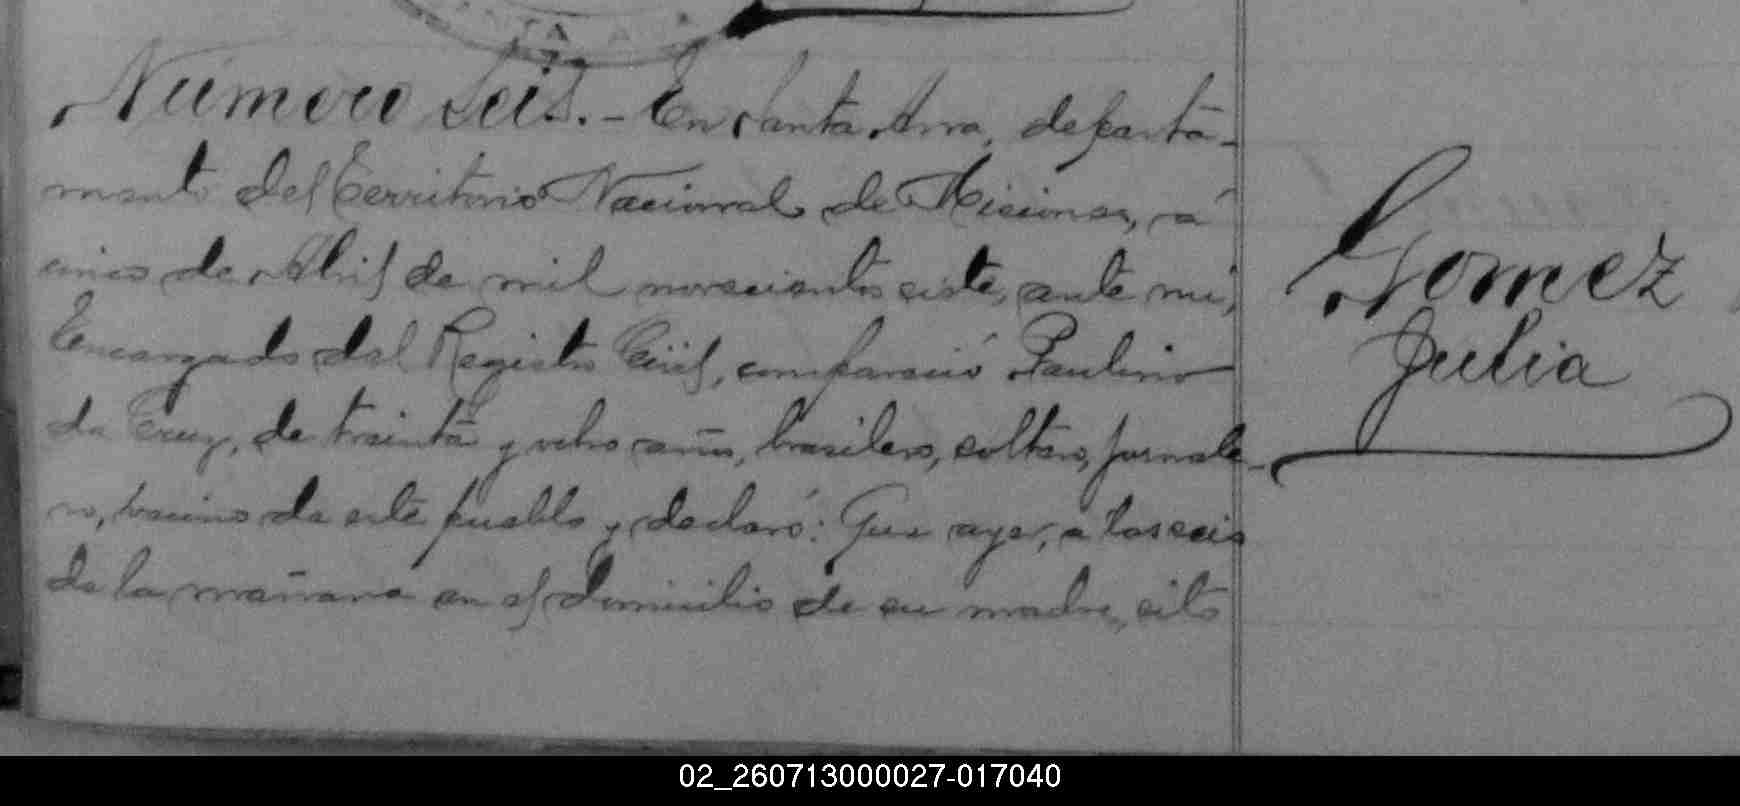 Número Seis. - En Santa Ana, departa-
mento del Territorio Nacional de Misiones, á
cinco de Abril de mil novecientos siete, ante mi,
Encargado del Registro Civil, compareció Paulino
da Cruz, de treinta y ocho años, brasilero, soltero, jornale-
ro, vecino de este pueblo y declaró: Que ayer, a las seis
de la mañana en el domicilio de su madre, sito
Gomez
Julia
02_260713000027-017040